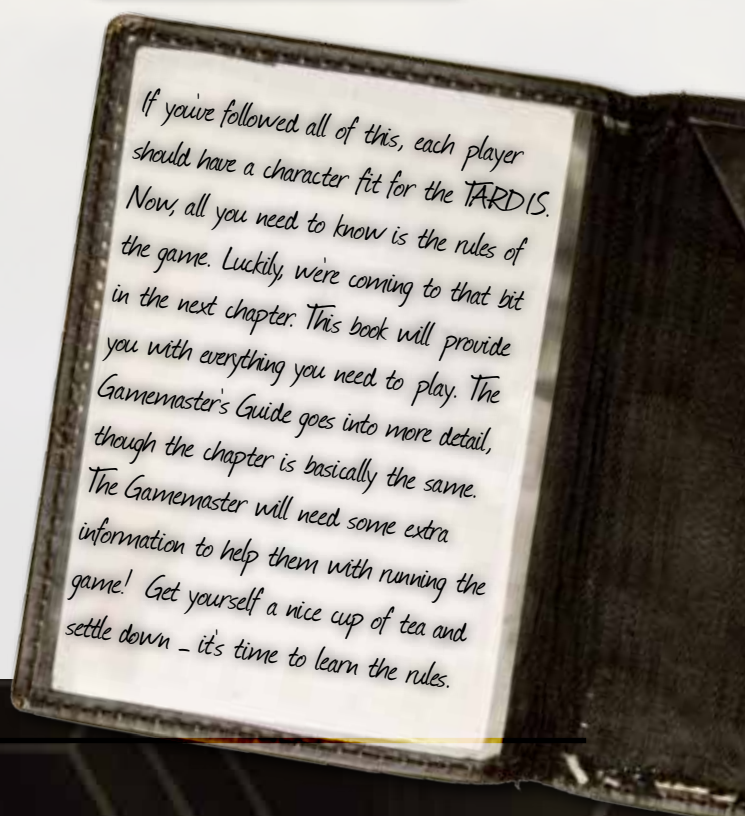 If you've followed all of this, each player
should have a character fit for the TARDIS.
Now, all you need to know is the rules of
the game. Luckily, we're coming to that bit
in the next chapter. This book will provide
you with everything you need to play. The
Gamemaster's Guide goes into more detail,
though the chapter is basically the same.
The Gamemaster will need some extra
information to help them with running the
game! Get yourself a nice cup of tea and
settle down – it's time to learn the rules.